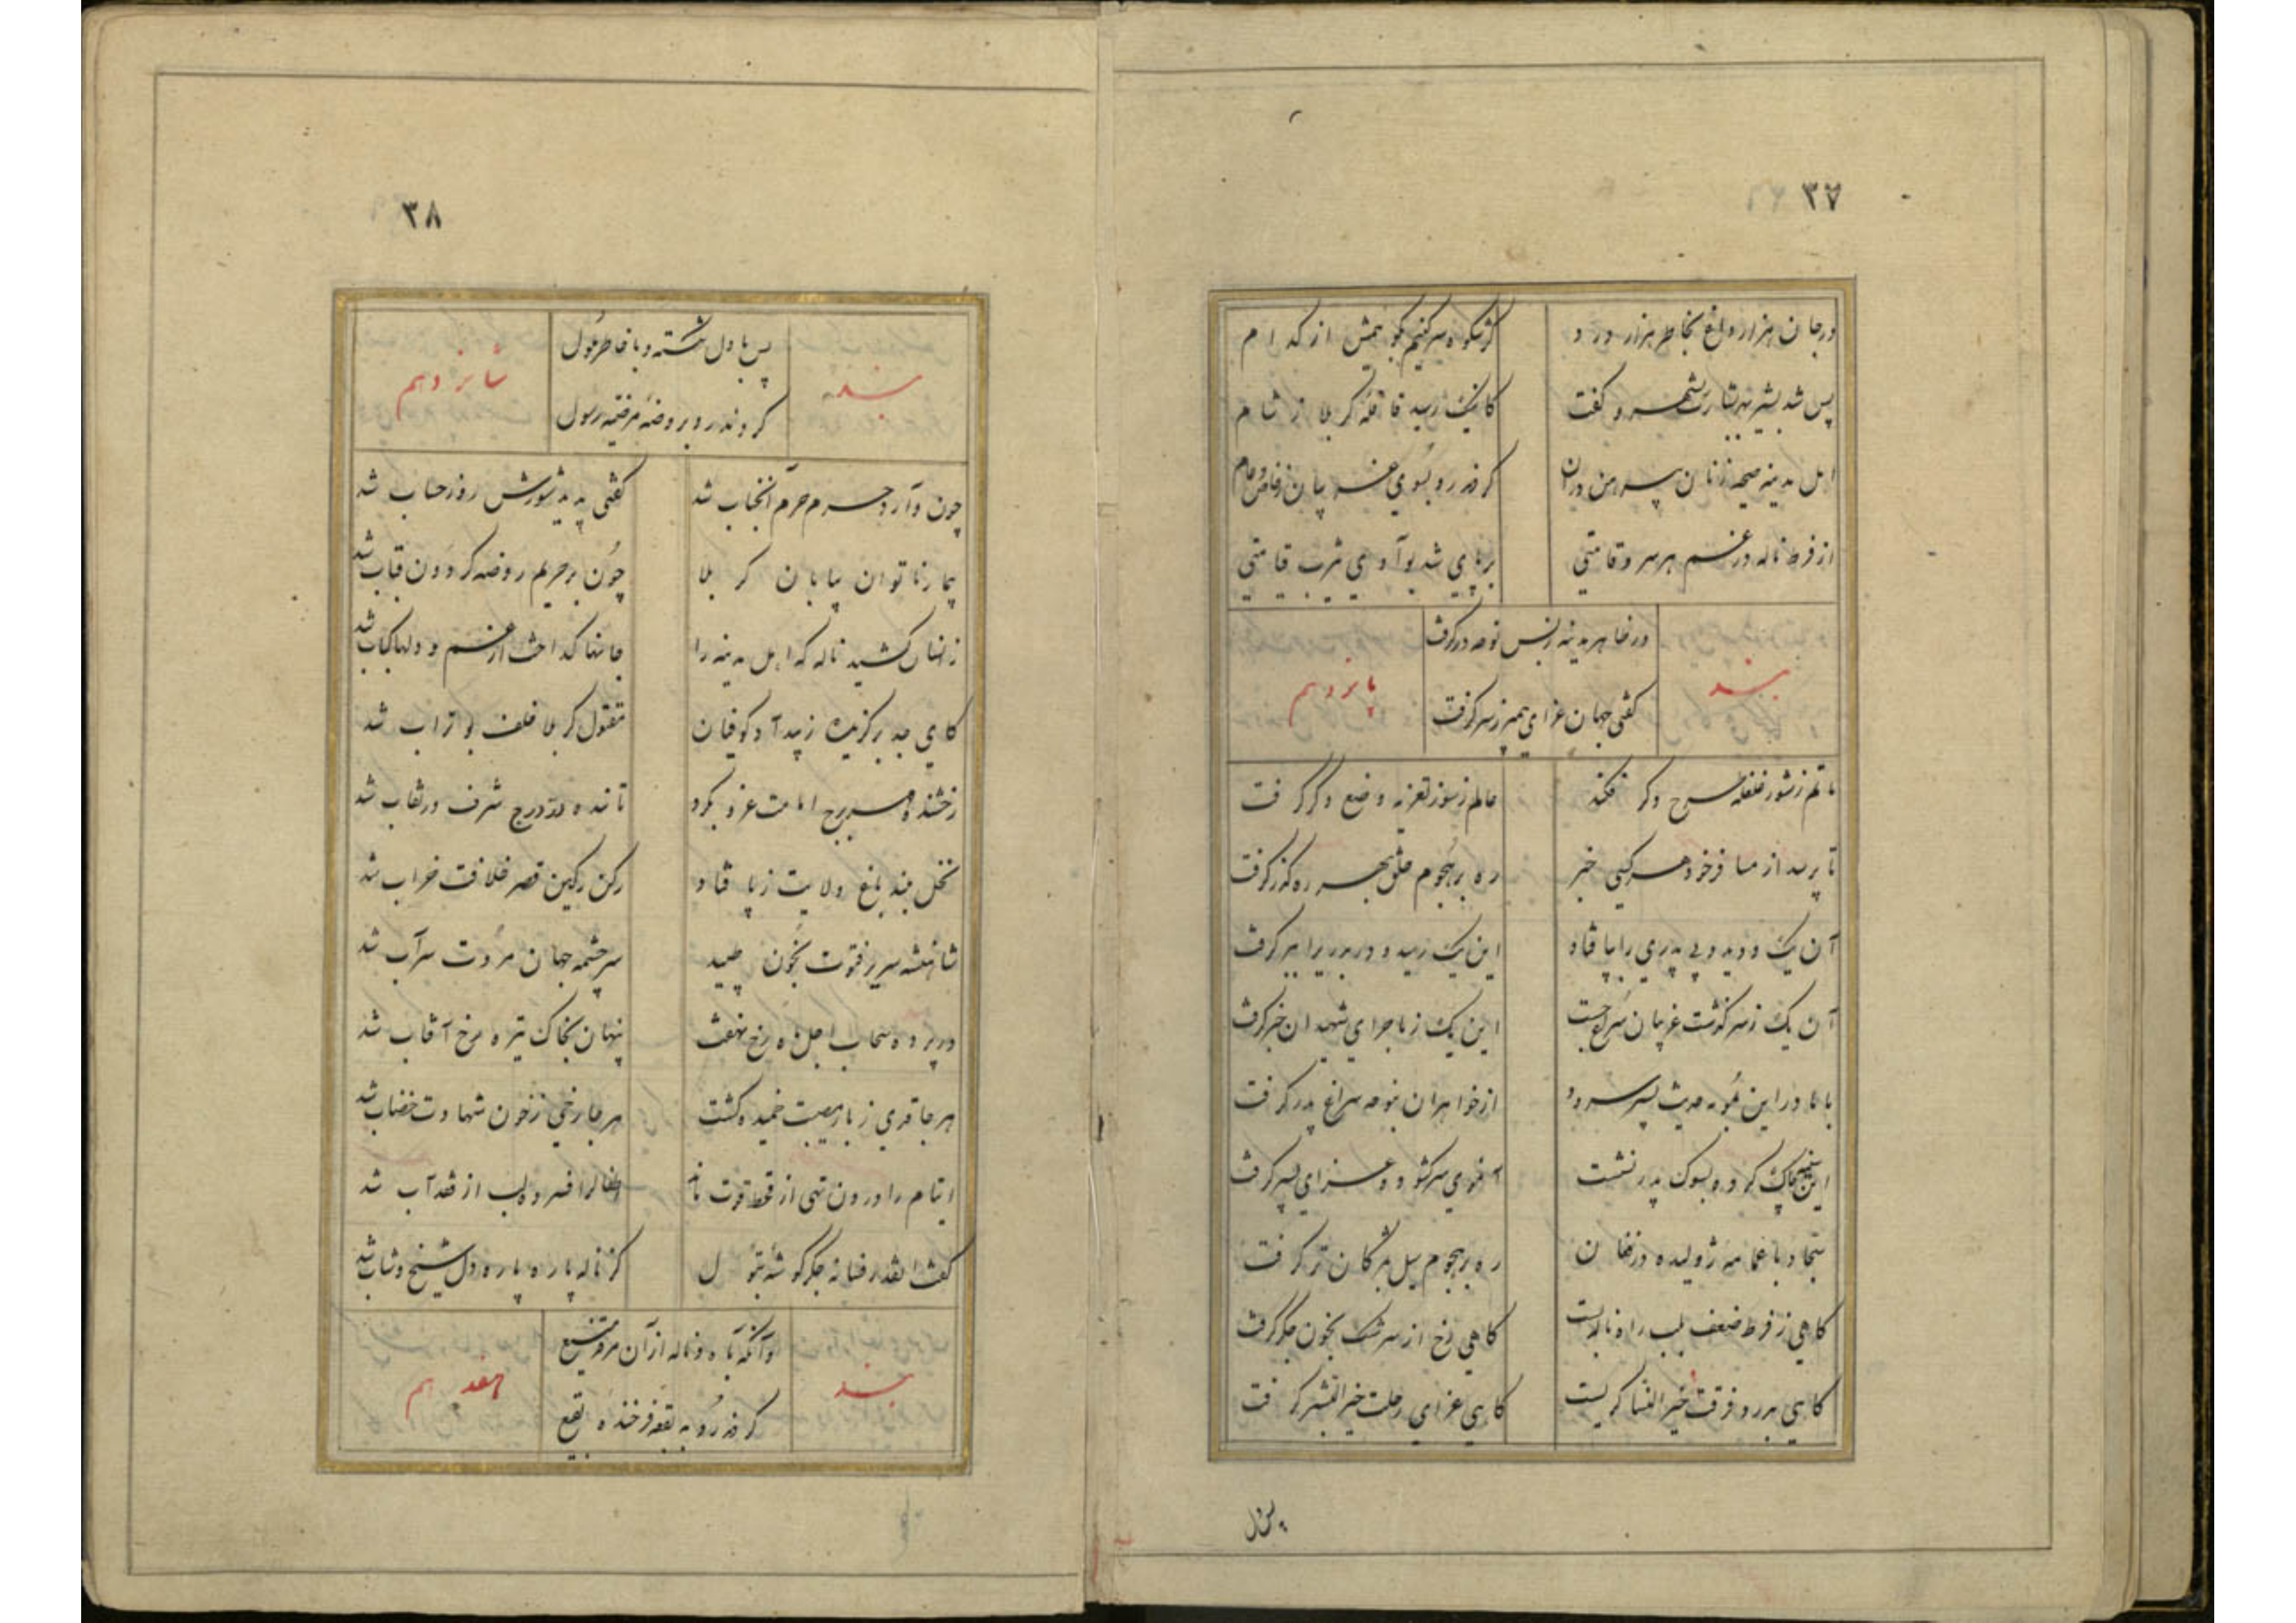 ۳۷
در جان هزار داغ بخاطر هزار درد
کز شکوه سر کنیم گو همش از کدام
پس شد بشیر به بشارت شهر و گفت
کاینک رسید قافله کربلا ز شام
اهل مدینه صیحه زنان
کردند رو بسوی غریبان ز خاص و عام
از فرط ناله در غم هر سرو قامتی
بر پای شد بوادی یثرب قیامتی
بند
در ظاهر مدینه ز بس نوحه درگرفت
گفتی جهان عزای پیمبر ز سر گرفت
پانزدهم
ماتم ز شور غلغله طرح دگر فکند
عالم ز سوز تعزیه وضع دگر گرفت
تا پرسد از مسافر خود هر کسی خبر
ره بر هجوم خلق بهر رهگذر گرفت
آن یک دوید و بی پدری را بپا فتاد
این یک رسید و دربدری را ببر گرفت
آن یک ز سرگذشت غریبان سراغ جست
این یک ز ماجرای شهیدان خبر گرفت
با مادر این بمویه حدیث پسر سرود
از خواهران بنوحه سراغ پدر گرفت
این سینه چاک کرد و بسوک پدر نشست
آن موی سر گشود و عزای پسر گرفت
سجاد با عمامه ژولیده در فغان
ره بر هجوم سیل مژگان تر گرفت
گاهی ز فرط ضعف بلب راه ناله بست
گاهی رخ از سرشک بخون جگر گرفت
گاهی بدرد فرقت خیر النسا گریست
گاهی عزای رحلت خیر البشر گرفت
پس با دل
۳۸
بند
پس با دل شکسته و با خاطر ملول
کردند رو بروضه مرضیه رسول
شانزدهم
چون وارد حرم حرم آنجناب شد
گفتی پدید شورش روز حساب شد
بیمار ناتوان بیابان کربلا
چون بر حریم روضه گردون قباب شد
زانسان کشید ناله که اهل مدینه را
جانها گداخت از غم و دلها کباب شد
کای جد برگزیده ز بیداد کوفیان
مقتول کربلا خلف بوتراب شد
رخشنده مهر برج امامت غروب کرد
تابنده در درج شرف در نقاب شد
نخل بلند باغ ولایت ز پا فتاد
رکن رکین قصر خلافت خراب شد
شاهنشه سریر فتوت بخون طپید
سرچشمه جهان مروت سراب شد
در پرده سحاب اجل ماه رخ نهفت
پنهان بخاک تیره رخ آفتاب شد
هر جا قدی ز بار مصیبت خمیده گشت
هر جا رخی ز خون شهادت خضاب شد
ایتام را درون تهی از قحط قوت ماند
اطفال را فسرده لب از فقد آب شد
گفت اینقدر فسانه جگرگوشه بتول
کز ناله پاره پاره دل شیخ و شاب شد
بند
وآنگه بآه و ناله از آن مرقد منیع
کردند رو به بقعه فرخنده بقیع
هفدهم